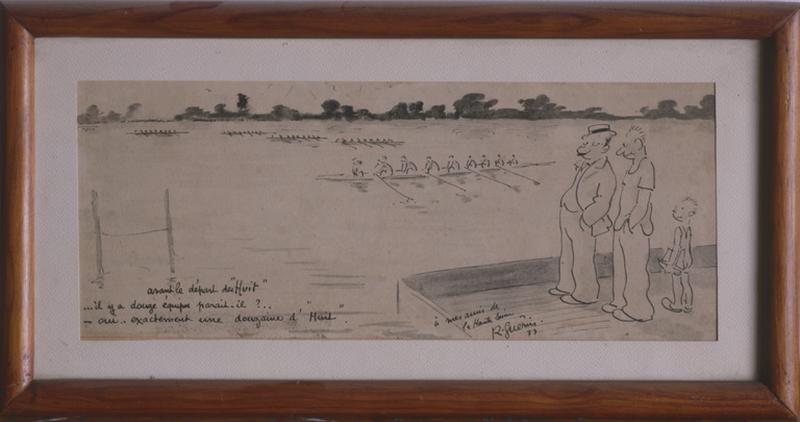 avant le départ des "Huit"
...il y a douze équipes paraît-il ?..
- oui.. exactement une douzaine d' "Huit".
à mes amis de
la Haute Seine
R. Guérin.
33